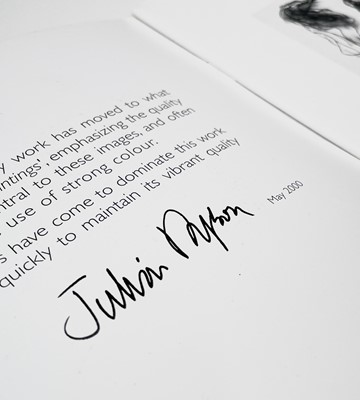 y work has moved to what
ntings', emphasizing the quality
ntral to these images, and often
use of strong colour.
s have come to dominate this work
quickly to maintain its vibrant quality
May 2000
Julian